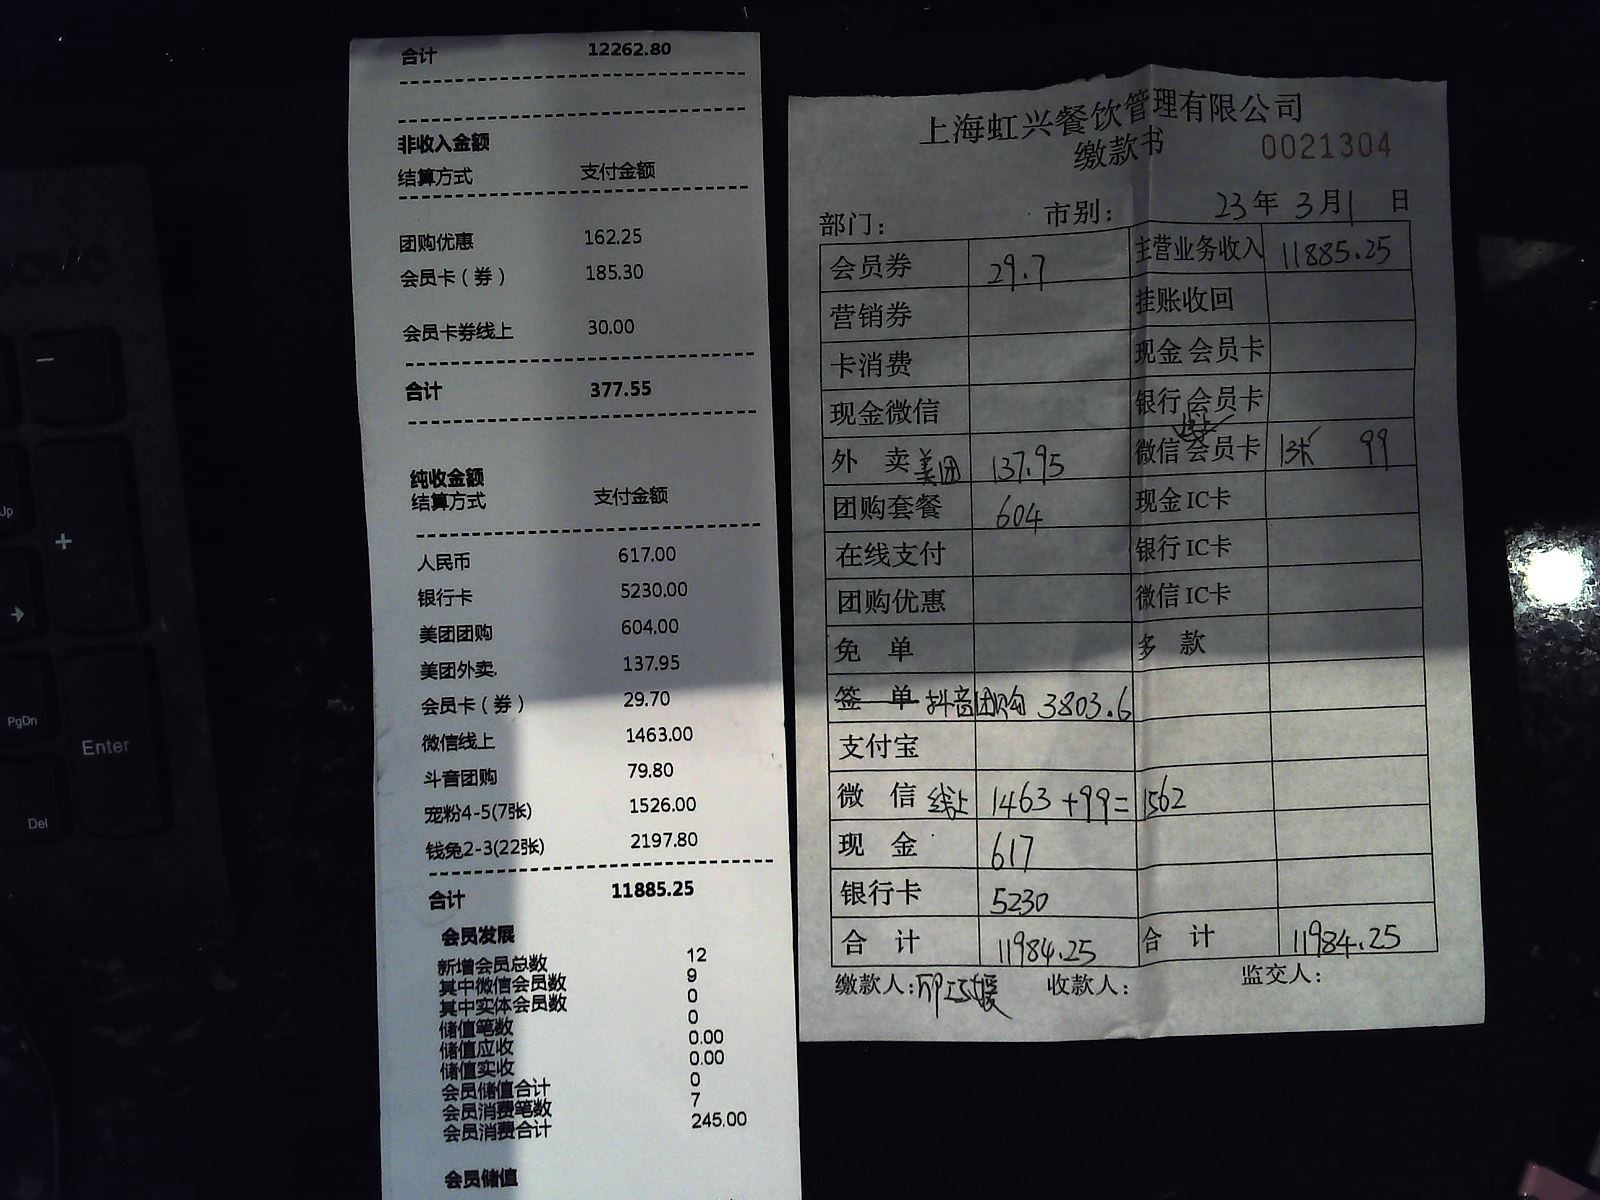 合计 12262.80
非收入金额
结算方式 支付金额
团购优惠 162.25
会员卡（券） 185.30
会员卡券线上 30.00
合计 377.55
纯收金额
结算方式 支付金额
人民币 617.00
银行卡 5230.00
美团团购 604.00
美团外卖 137.95
会员卡（券） 29.70
微信线上 1463.00
斗音团购 79.80
宠粉4-5(7张) 1526.00
钱兔2-3(22张) 2197.80
合计 11885.25
会员发展
新增会员总数 12
其中微信会员数 9
其中实体会员数 0
储值笔数 0
储值应收 0.00
储值实收 0.00
会员储值合计 0
会员消费笔数 7
会员消费合计 245.00
会员储值
上海虹兴餐饮管理有限公司
缴款书 0021304
部门： 市别： 23年 3月1 日
会员券 29.7 主营业务收入 11885.25
营销券 挂账收回
卡消费 现金 会员卡
现金微信 银行 会员卡
外 卖 美团 137.95 微信 会员卡 13张 99
团购套餐 604 现金 IC卡
在线支付 银行 IC卡
团购优惠 微信 IC卡
免 单 多 款
签 单 抖音团购 3803.6
支付宝
微 信 线上 1463+99=1562
现 金 617
银行卡 5230
合 计 11984.25 合 计 11984.25
缴款人： 收款人： 监交人：
Up
PgDn
Enter
Del
+